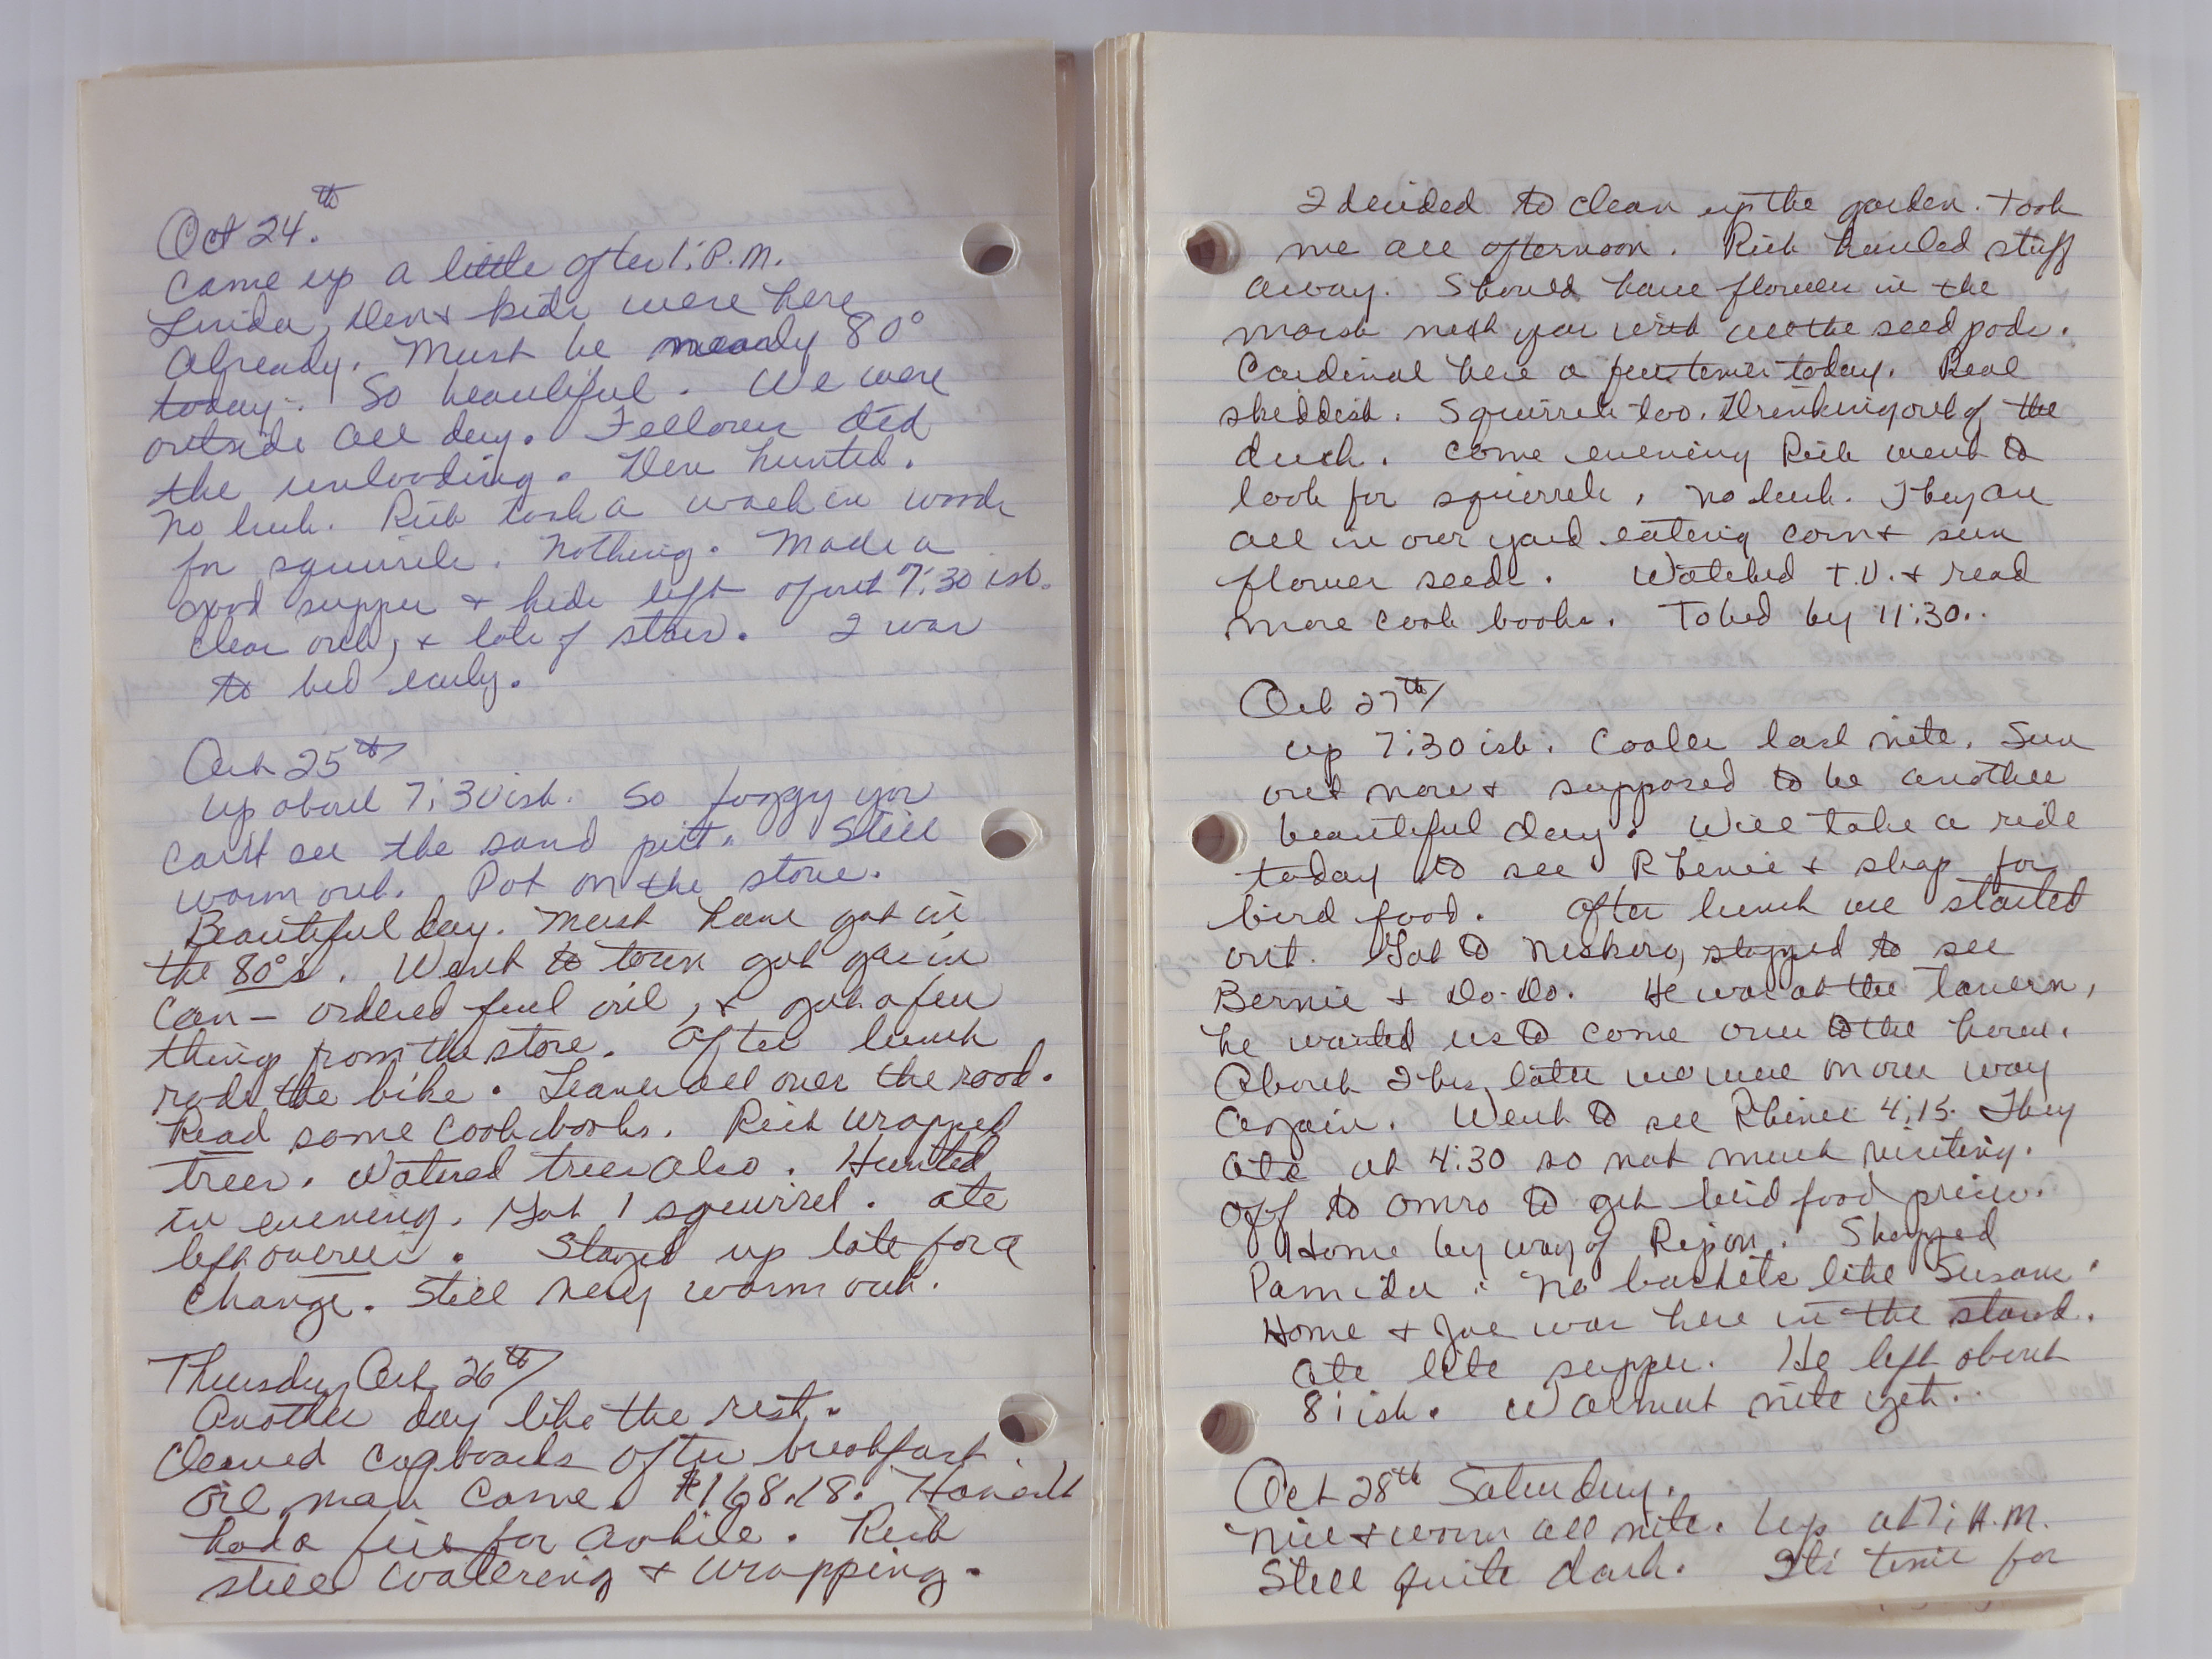 Oct 24.th
Came up a little after 1: P.M.
Linda, Den & kids were here
Already. Must be nearly 80°
today. So beautiful. We were
outside all day. Fellows did
the unloading. Den hunted.
No luck. Rich took a walk in woods
for squirrels. Nothing. Made a
good supper & kids left about 7:30 ish.
Clear out, & lots of stars. I was
to bed early.
Oct 25th
Up about 7:30 ish. So foggy you
can't see the sand pitt. Still
warm out. Pot on the stove.
Beautiful day. Must have got in
the 80°s. Went to town got gas in
can - ordered fuel oil, & got a few
things from the store. After lunch
rode the bike. Leaves all over the road.
Read some cook books. Rich wrapped
trees. Watered trees also. Hunted
in evening. Got 1 squirrel. Ate
left overs. Stayed up late for a
change. Still very warm out.
Thursday Oct 26th
Another day like the rest.
Cleaned cupboards after breakfast.
Oil man came. $168.18. Haven't
had a fire for awhile. Rich
still watering & wrapping.
I decided to clean up the garden. Took
me all afternoon. Rich hauled stuff
away. Should have flowers in the
marsh next year with all the seed pods.
Cardinal here a few times today. Real
skeddish. Squirrels too. Drinking out of the
duck. Come evening Rich went to
look for squirrels, no luck. They are
all in our yard eating corn & sun
flower seeds. Watched T.V. & read
more cook books. To bed by 11:30..
Oct 27th
Up 7:30 ish. Cooler last nite. Sun
out now & supposed to be another
beautiful day. Will take a ride
today to see Rhenie & shop for
bird food. After lunch we started
out. Got to Neshkoro, stopped to see
Bernie & Do-Do. He was at the tavern,
he wanted us to come over to the house.
About 2 hrs later we were on our way
again. Went to see Rhenie 4:15. They
ate at 4:30 so not much visiting.
Off to Omro to get bird food prices.
Home by way of Ripon. Shopped
Pamida. No baskets like Susans.
Home & Joe was here in the stand.
Ate lite supper. He left about
8: ish. Warmest nite yet..
Oct 28th Saturday.
Nice & warm all nite. Up at 7: A.M.
Still quite dark. It's time for